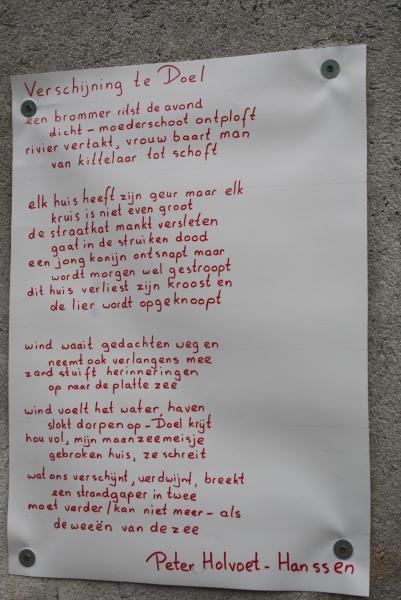 Verschijning te Doel
een brommer ritst de avond
dicht - moederschoot ontploft
rivier vertakt, vrouw baart man
van kittelaar tot schoft
elk huis heeft zijn geur maar elk
kruis is niet even groot
de straatkat mankt versleten
gaat in de struiken dood
een jong konijn ontsnapt maar
wordt morgen wel gestroopt
dit huis verliest zijn kroost en
de lier wordt opgeknoopt
wind waait gedachten weg en
neemt ook verlangens mee
zand stuift herinneringen
op naar de platte zee
wind voelt het water, haven
slokt dorpen op - Doel krijt
hou vol, mijn maanzeemeisje
gebroken huis, ze schreit
wat ons verschijnt, verdwijnt, breekt
een strandgaper in twee
moet verder/kan niet meer - als
de weeën van de zee
Peter Holvoet - Hanssen